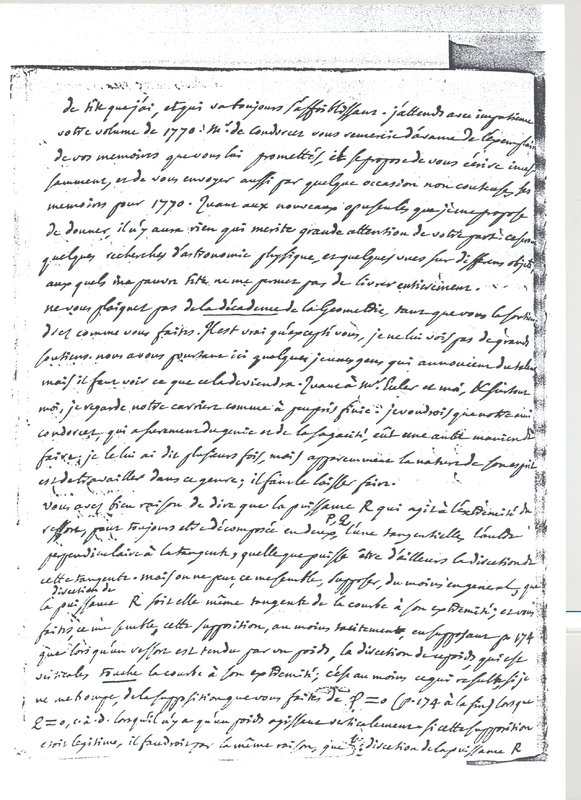 de tête que j'ai, et qui va toujours s'affoiblissant. j'attends avec impatience
votre volume de 1770. Mr. de Condorcet vous remercie d'avance de l'exemplaire
de vos memoires que vous lui promettés, il se propose de vous écrire inces
samment, et de vous envoyer aussi par quelque occasion non couteuse, ses
memoires pour 1770. Quant aux nouveaux opuscules que je me propose
de donner, il n'y aura rien qui merite grande attention de votre part: ce sont
quelques recherches d'astronomie physique, et quelques vues sur differens objets
aux quels ma pauvre tête ne me permet pas de livrer entierement.
ne vous plaignez pas de la décadence de la Geometrie, tant que vous la soutien
drez comme vous faites. Il est vrai qu'excepté vous, je ne lui vois pas de grands
soutiens. nous avons pourtant ici quelques jeunes gens qui annoncent du talent
mais il faut voir ce que cela deviendra. Quant à Mr. Euler et moi, & surtout
moi, je regarde notre carriere comme à peu près finie: je voudrois que notre ami
Condorcet qui a surement du genie et de la sagacité, eût une autre maniere de
faire; je le lui ai dit plusieurs fois, mais apparemment la nature de son esprit
est de travailler dans ce genre; il faut le laisser faire.
vous avez bien raison de dire que la puissance R qui agit à l'extrémité du
ressort, peut toujours etre décomposée en deux P, Q l'une tangentielle, l'autre
perpendiculaire à la tangente, quelle que puisse être d'ailleurs la direction de
cette tangente. mais on ne peut ce me semble, supposer, du moins en general, que
la direction de la puissance R soit elle même tangente de la courbe à son extrémité; et vous
faites ce me semble, cette supposition, au moins tacitement, en supposant p. 174
que lorsqu'un ressort est tendu par un poids, la direction de ce poids, qui est
verticale touche la courbe à son extrémité; c'est au moins ce qui resulte, si je
ne me trompe, de la supposition que vous faites de Q=0 (p. 174 à la fin) lorsque
Q=0, c. à. d. lorsqu'il n'y a qu'un poids agissant verticalement. si cette supposition
etoit legitime, il faudroit par la même raison, que la direction de la puissance R